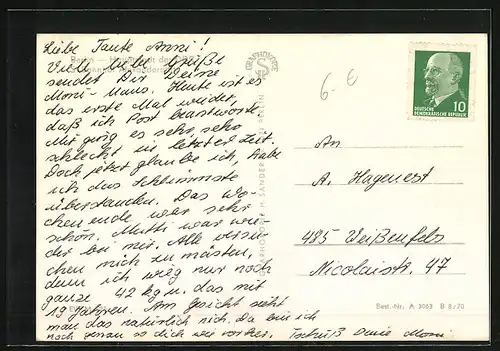 Liebe Tante Anni!
Viele liebe Grüße
sendet Dir Deine
Moni-Maus. Heute ist es
das erste Mal wieder,
daß ich Post beantworte.
Mir ging es sehr, sehr
schlecht in letzter Zeit.
Doch jetzt glaube ich, habe
ich das Schlimmste
überstanden. Das Wo-
chenende war sehr
schön. Mutti war wie-
der bei mir. Alle versu-
chen mich zu mästen,
denn ich wieg nur noch
ganze 42 kg u. das mit
19 Jahren. Am Gesicht sieht
man das natürlich nicht. Da bin ich
noch genau so dick wie vorher. Tschüß Deine Moni
Berlin
GRAPHOKOPIE
6.- €
10
DEUTSCHE
DEMOKRATISCHE REPUBLIK
An
A. Hagenest
485 Weißenfels
Nicolaistr. 47
Best.-Nr. A 3063 B 8/70